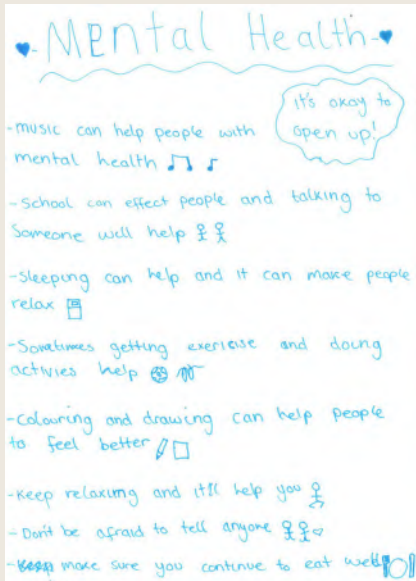 Mental Health
it's okay to
open up!
-music can help people with
mental health
-School can effect people and talking to
Someone will help
-Sleeping can help and it can make people
relax
-Sometimes getting exericise and doing
activies help
-Colouring and drawing can help people
to feel better
-Keep relaxing and it'll help you
-Don't be afraid to tell anyone
-Keep make sure you continue to eat well